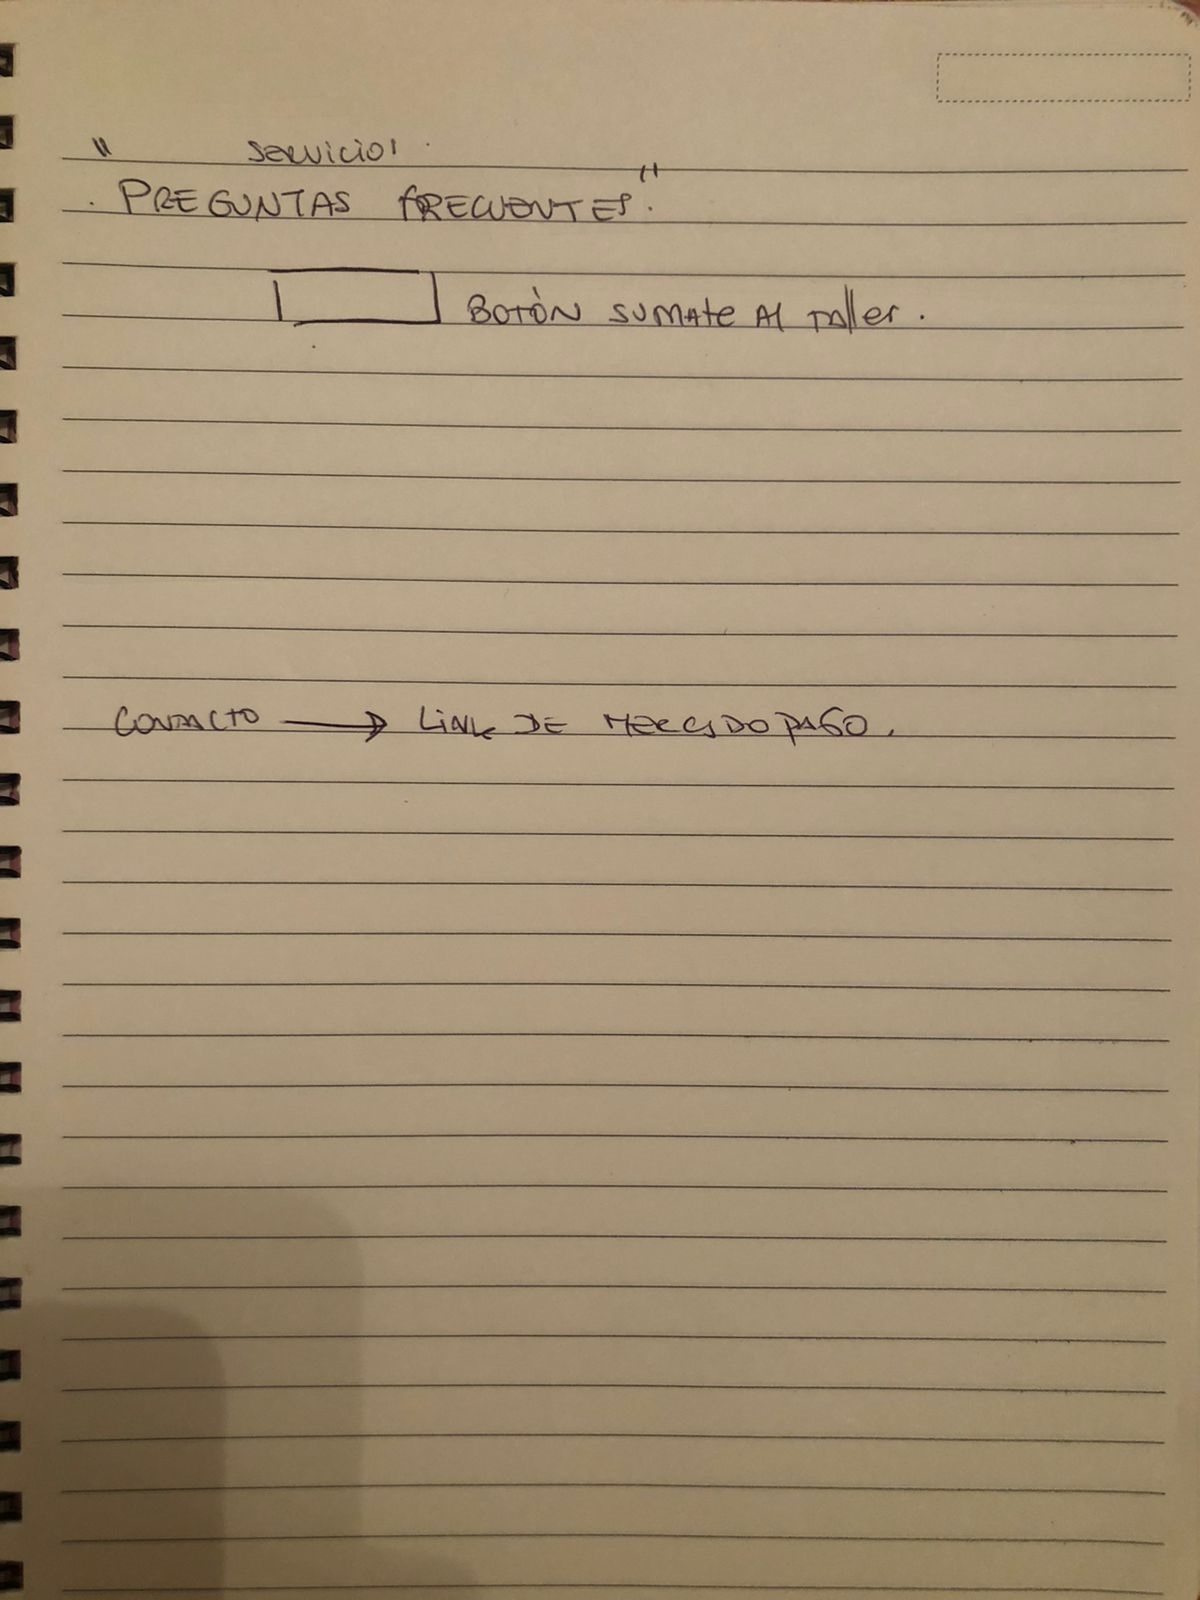 " servicios.
. PREGUNTAS FRECUENTES".
BOTÓN SUMATE Al TAller.
CONTACTO → LINK DE MERCADOPAGO.